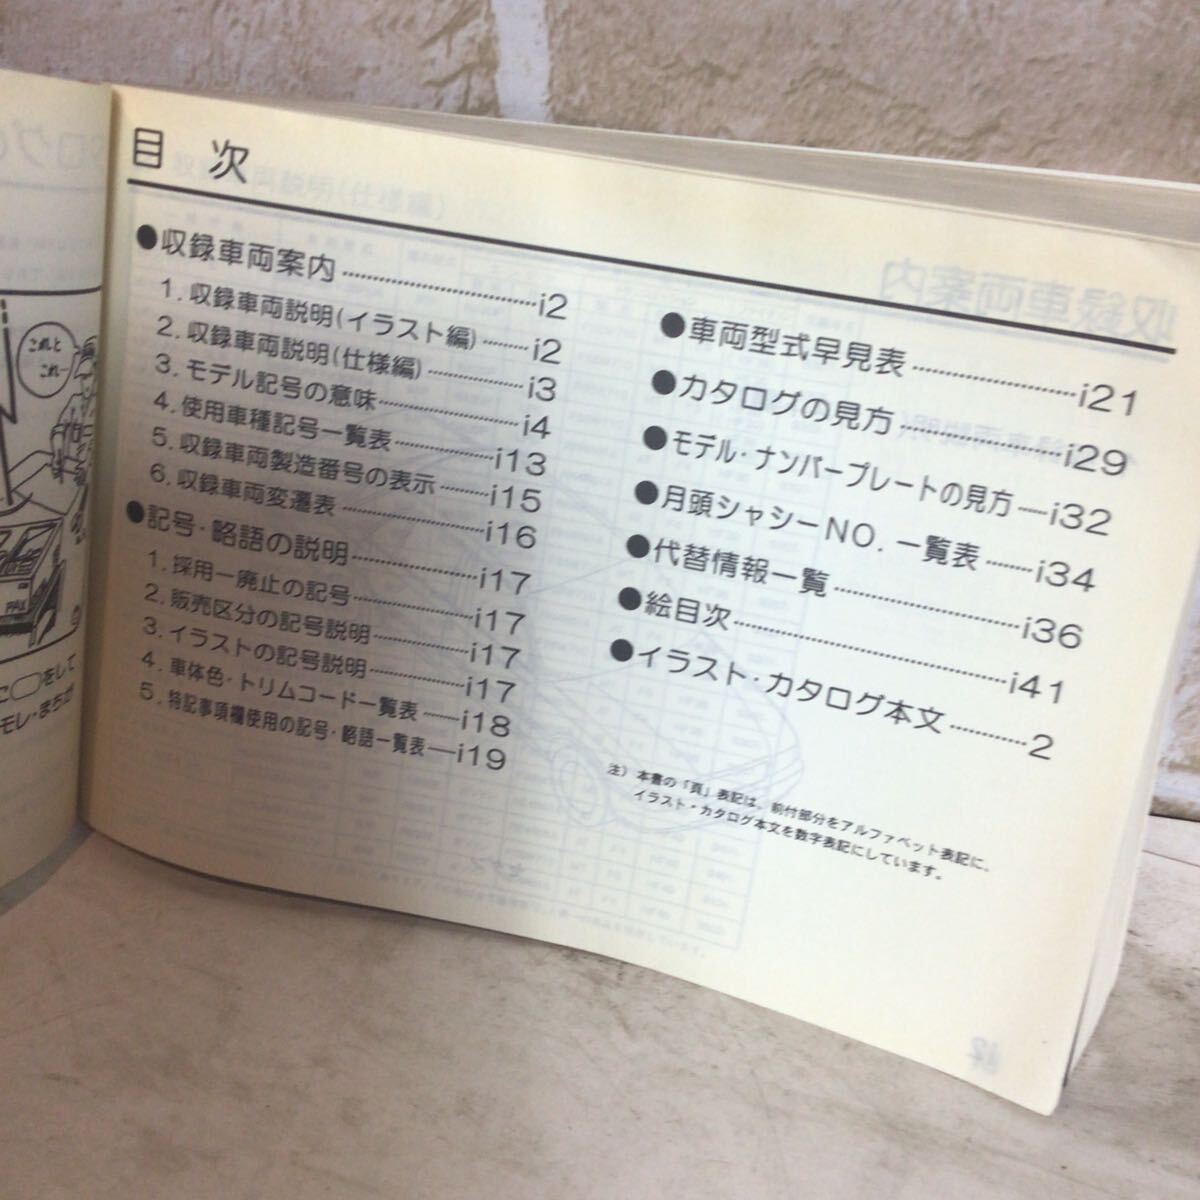 目 次
●収録車両案内……i2
1. 収録車両説明(イラスト編)……i2
2. 収録車両説明(仕様編)……i3
3. モデル記号の意味……i4
4. 使用車種記号一覧表……i13
5. 収録車両製造番号の表示……i15
6. 収録車両変遷表……i16
●記号・略語の説明……i17
1. 採用―廃止の記号……i17
2. 販売区分の記号説明……i17
3. イラストの記号説明……i17
4. 車体色・トリムコード一覧表……i18
5. 特記事項欄使用の記号・略語一覧表……i19
●車両型式早見表……i21
●カタログの見方……i29
●モデル・ナンバープレートの見方……i32
●月頭シャシーNO. 一覧表……i34
●代替情報一覧……i36
●絵目次……i41
●イラスト・カタログ本文……2
注) 本書の「頁」表記は、前付部分をアルファベット表記に、
イラスト・カタログ本文を数字表記にしています。
これと
これ…
をして
モレ・まちが